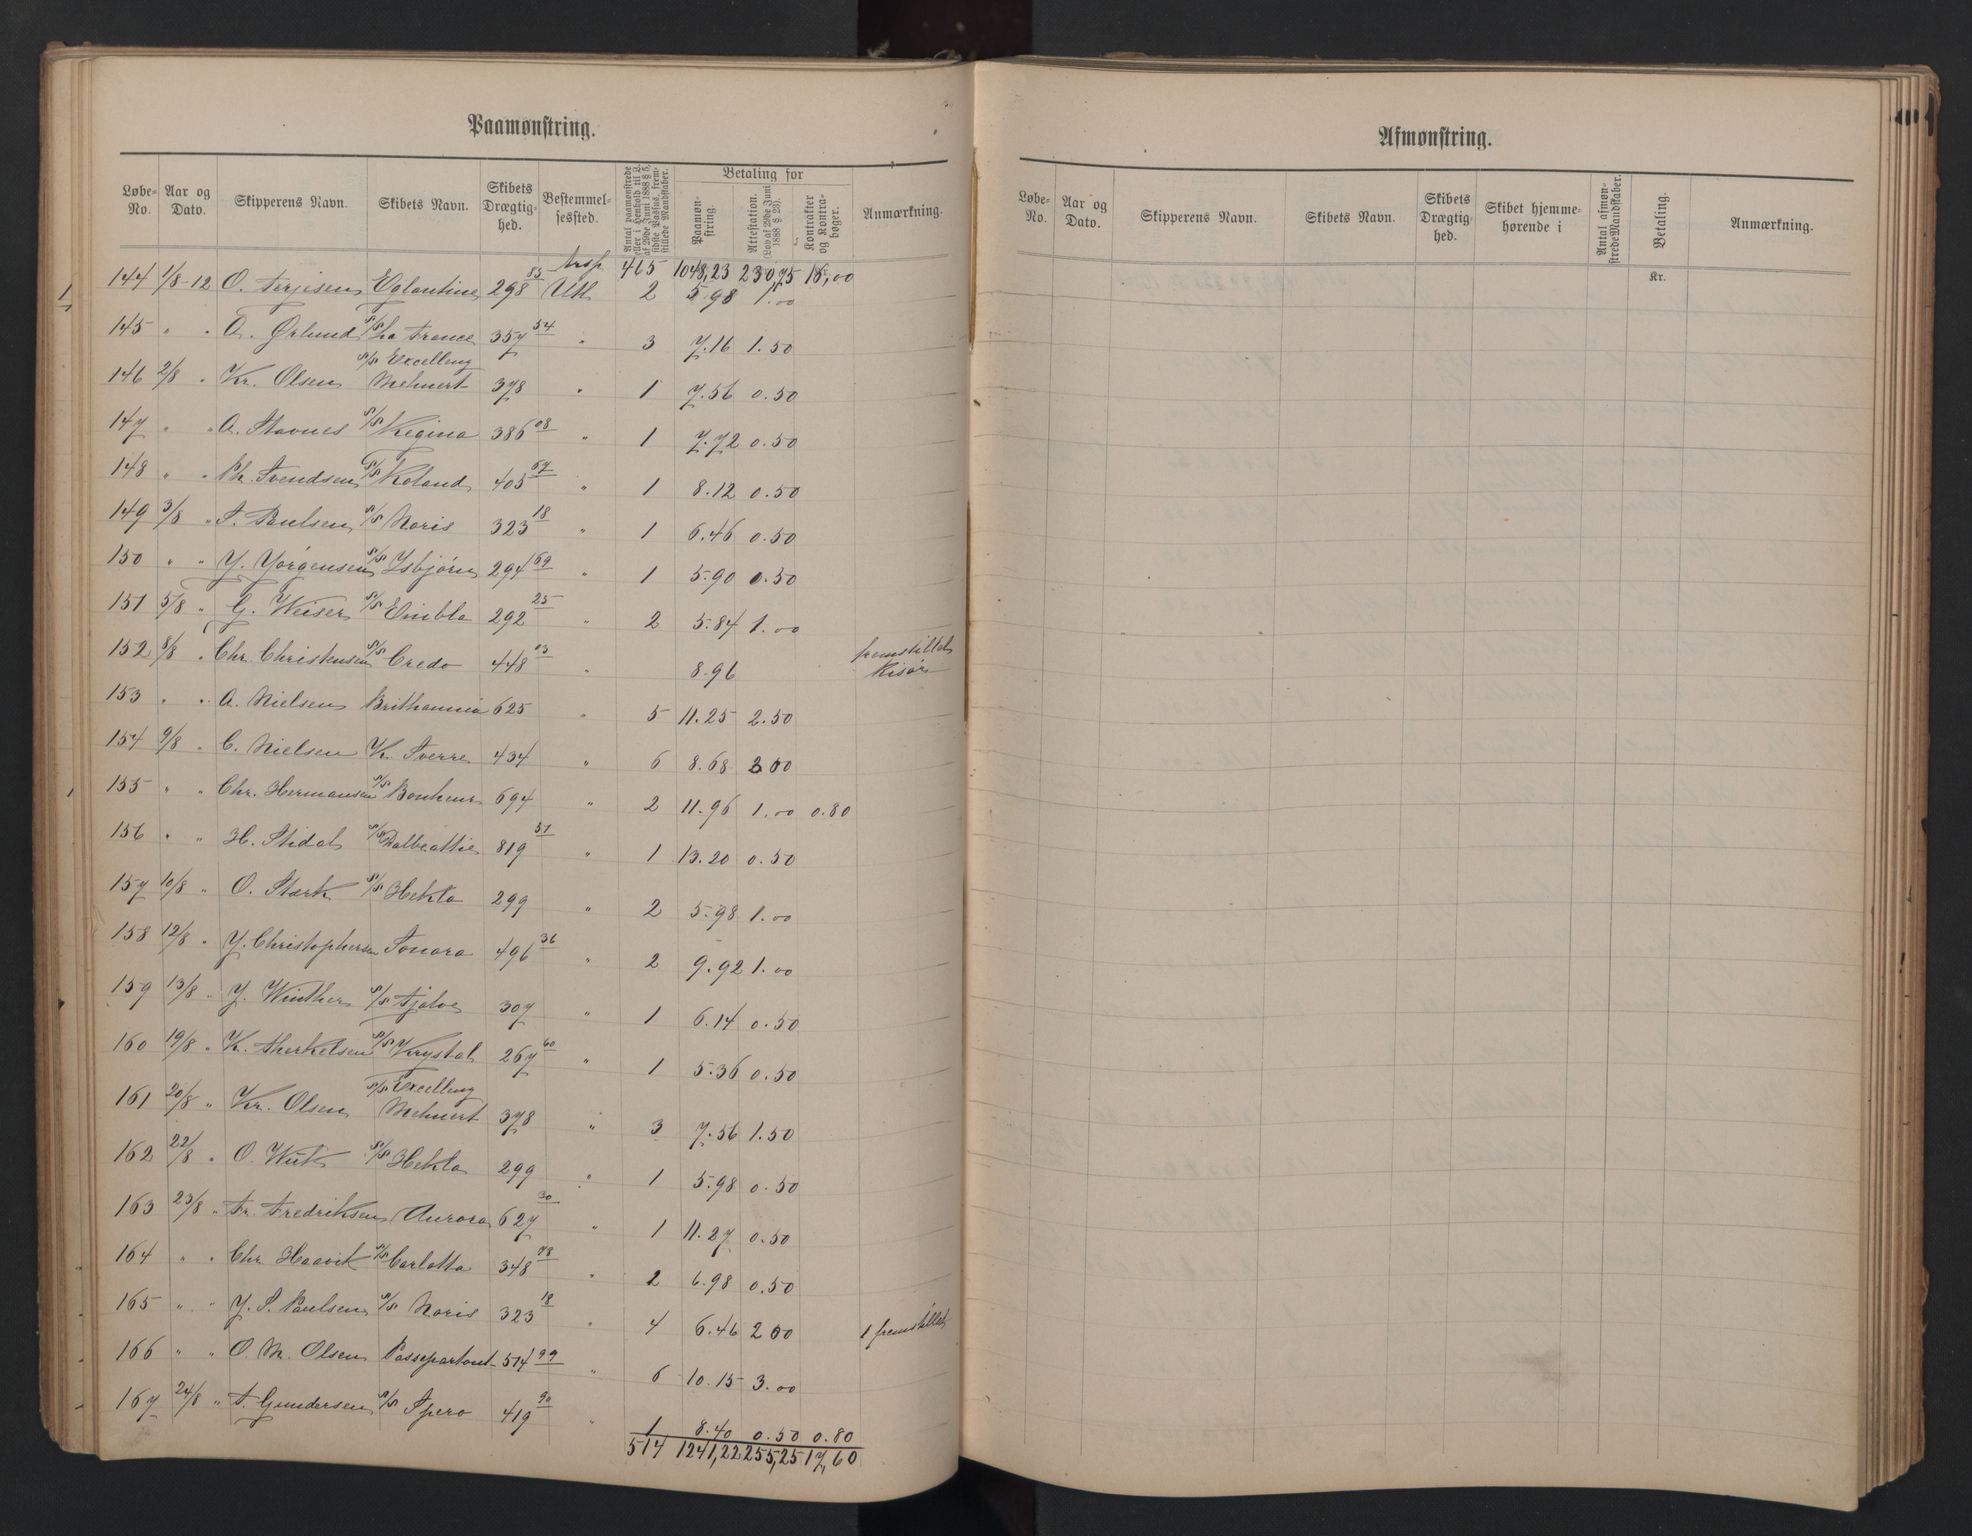 Paamønstring.
Løbe-No. Aar og Dato. Skipperens Navn. Skibets Navn. Skibets Drægtighed. Bestemmelsessted. Antal paamønstrede eller i Henhold til L. af 29de Juni 1888 § 5, sidste Passus, fremstillede Mandskaber. Betaling for Paamønstring. Attestation. (Lov af 29de Juni 1888 § 23). Kontrakter og Kontrabøger. Anmærkning.
Trsp. 465 1048,23 230,75 16,00
144 1/8-12 O. Terjesen Eglantine 298 83 Utl 2 5.98 1.00
145 " " A. Ørlund S/S La France 357 54 " 3 7.16 1.50
146 2/8 " Kr. Olsen S/S Excelleng Mehnert 378 " 1 7.56 0.50
147 " " A. Stavnes S/S Regina 386 08 " 1 7.72 0.50
148 " " Ph. Svendsen S/S Roland 405 67 " 1 8.12 0.50
149 3/8 " S. Paulsen S/S Noris 323 18 " 1 6.46 0.50
150 " " J. Jørgensen S/S Isbjørn 294 69 " 1 5.90 0.50
151 5/8 " G. Weiser S/S Embla 292 25 " 2 5.84 1.00
152 8/8 " Chr. Christensen S/S Credo 448 03 " 8.96 fremstillet Risør
153 " " A. Nielsen Brithannia 625 " 5 11.25 2.50
154 9/8 " C. Nielsen K. Sverre 434 " 6 8.68 3.00
155 " " Chr. Hermansen S/S Bonheur 694 " 2 11.96 1.00 0.80
156 " " H. Stidal S/S Dalbeattie 819 51 " 1 13.20 0.50
157 10/8 " O. Stærk S/S Hekla 299 " 2 5.98 1.00
158 12/8 " J. Christophersen Sonora 496 36 " 2 9.92 1.00
159 13/8 " J. Winther S/S Fjalve 307 " 1 6.14 0.50
160 19/8 " K. Therkelsen S/S Krystal 267 60 " 1 5.36 0.50
161 20/8 " Kr. Olsen S/S Excelleng Mehnert 378 " 3 7.56 1.50
162 22/8 " O. Wiik S/S Hekla 299 " 1 5.98 0.50
163 23/8 " Fr. Fredriksen Aurora 627 30 " 1 11.27 0.50
164 " " Chr. Haavik S/S Carlotta 348 78 " 2 6.98 0.50
165 " " J. S. Paulsen S/S Noris 323 18 " 4 6.46 2.00 1 fremstillet
166 " " O. M. Olsen Passepartout 514 99 " 6 10.15 3.00
167 24/8 " F. Gundersen S/S Spero 419 90 " 1 8.40 0.50 0.80
514 1241,22 255,25 17,60
Afmønstring.
Løbe-No. Aar og Dato. Skipperens Navn. Skibets Navn. Skibets Drægtighed. Skibet hjemmehørende i Antal afmønstrede Mandskaber. Betaling. Anmærkning.
Kr.